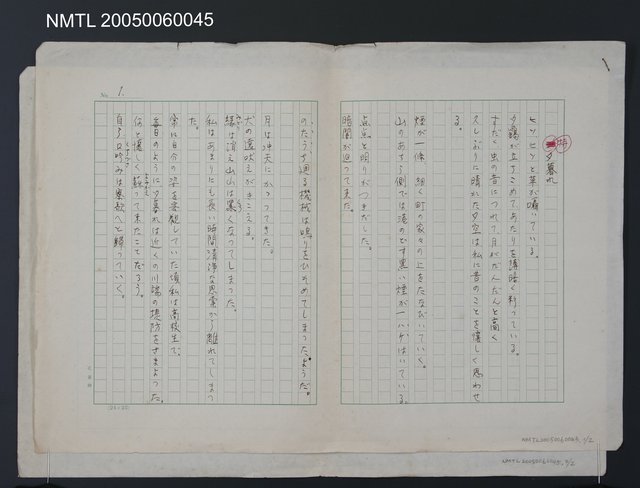 NMTL 20050060045
No. 1.
詩
夕暮れ
ヒソヒソと草が囁いている。
夕靄が立ちこめてあたりを薄暗く判っている。
すだく虫の音につれて月がだんだんと高く
久しぶりに晴れた夕空は私に昔のことを懐しく思わせ
る。
煙が一條 細く町の家々の上をたなびいていく。
山のあちら側では湯のどす黒い煙が一ハケはいている。
点点と明りがつきだした。
暗闇が迫って来た。
のたうち廻る機械は鳴りをひそめてしまったようだ。
月は冲天にかかってきた。
犬の遠吠えがきこえる。
緑は消え山山は黒くなってしまった。
私はあまりにも長い時間清浄な思索から離れてしまっ
た。
常に自分の姿を客観していた頃私は高校生で、
毎日のように夕暮れは近くの川端の堤防をさまよった。
何と懐しく蘇って来たことだろう。
自ら口吟みは悪歌へと歸っていく。
(20×25)
NMTL20050060045, 1/2
NMTL20050060045, 2/2